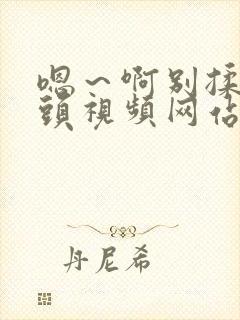 嗯～啊别揉
頭視頻网佔
丹尼希